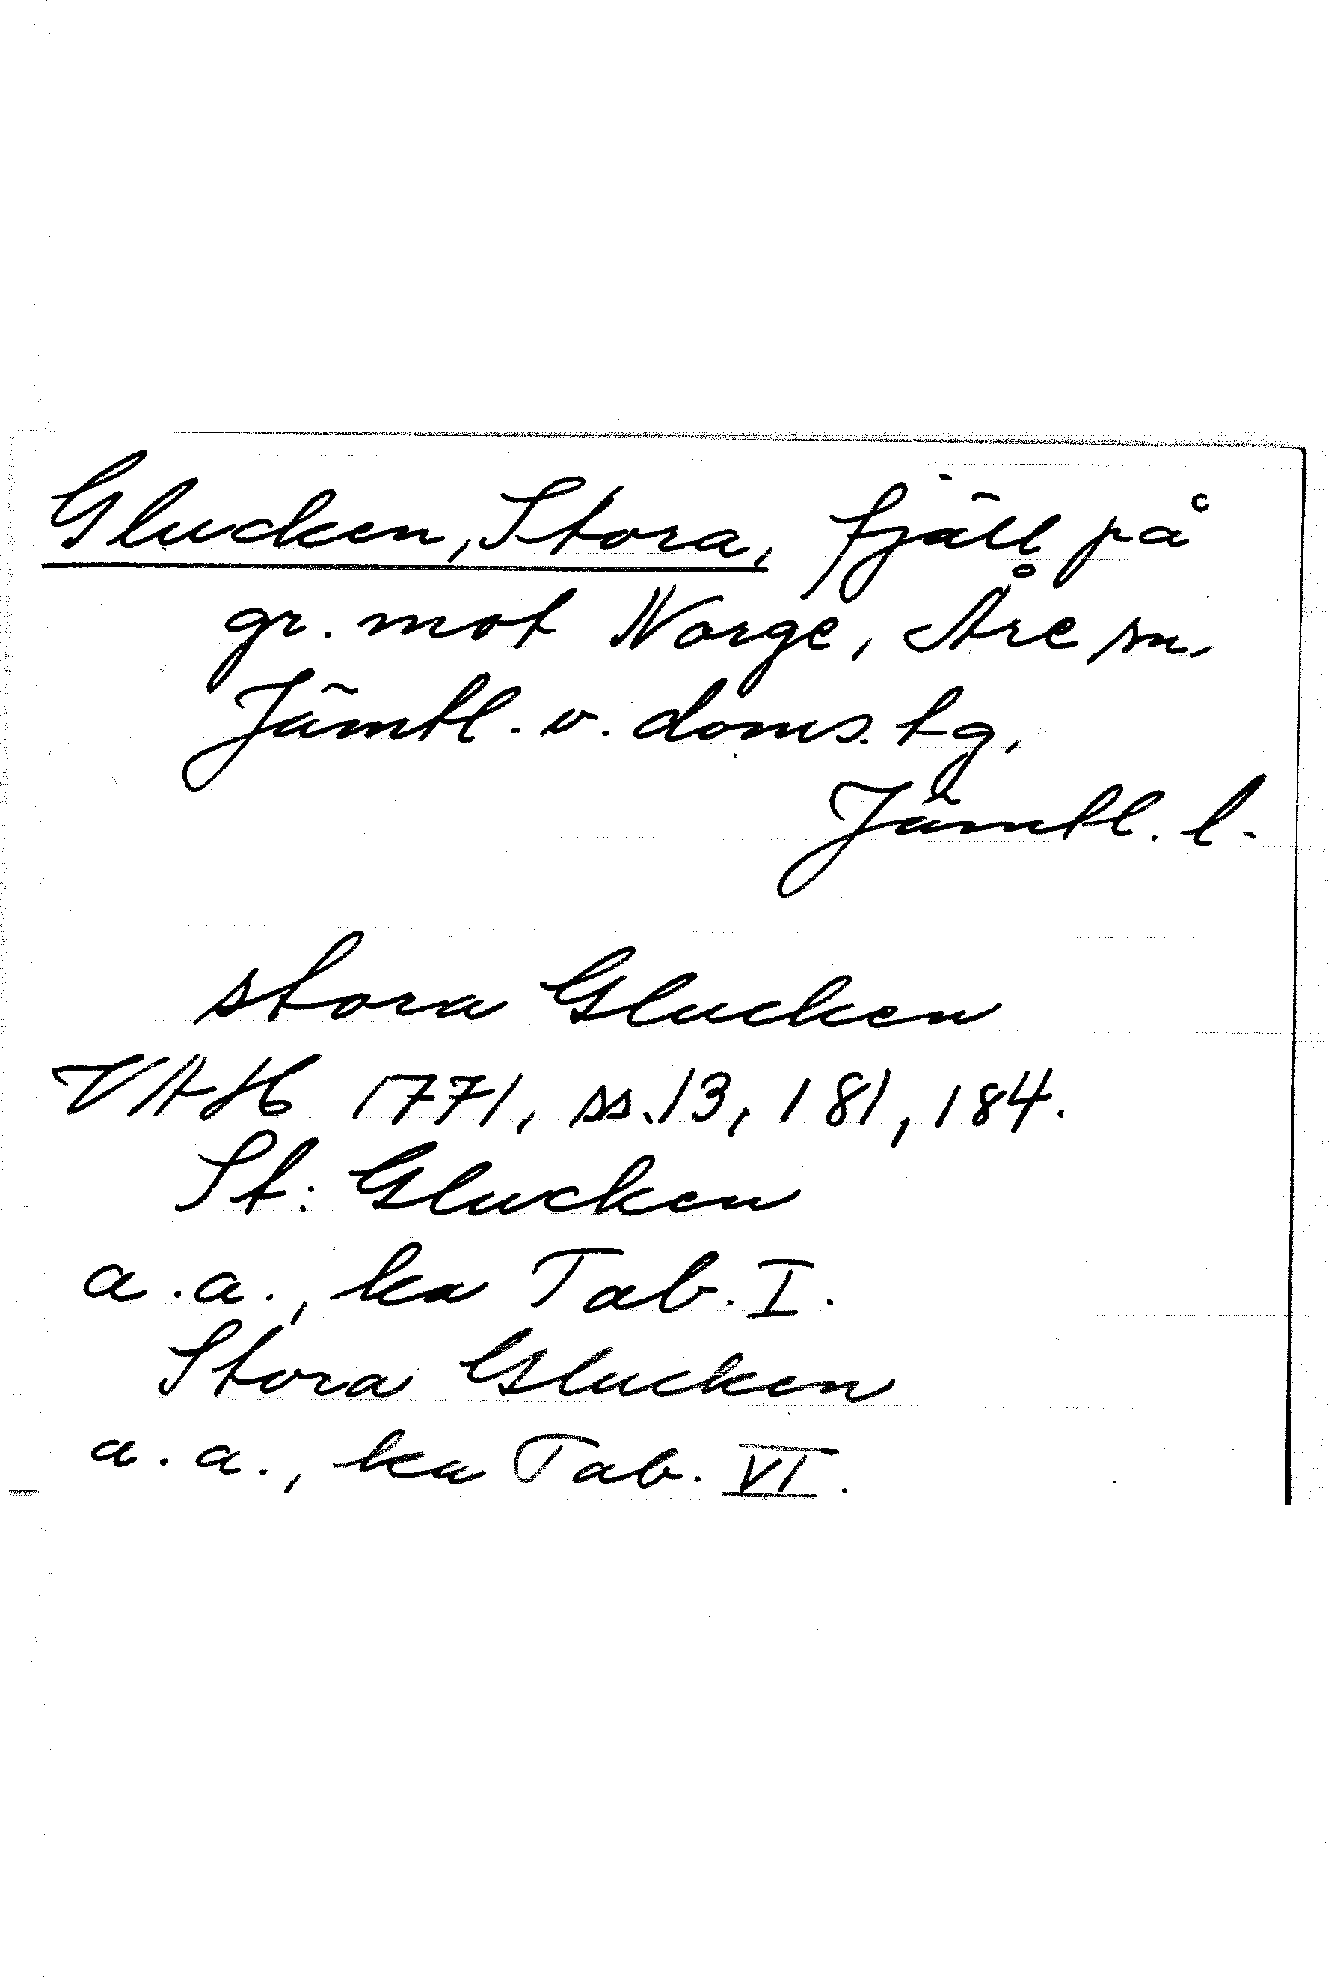 Glucken, Stora, fjäll på
gr. mot Norge, Åre sn,
Jämtl. v. doms. tg,
Jämtl. l.
stora Glucken
VAH 1771, ss. 13, 181, 184.
St: Glucken
a.a., ka Tab. I.
Stora Glucken
a.a., ka Tab. VI.